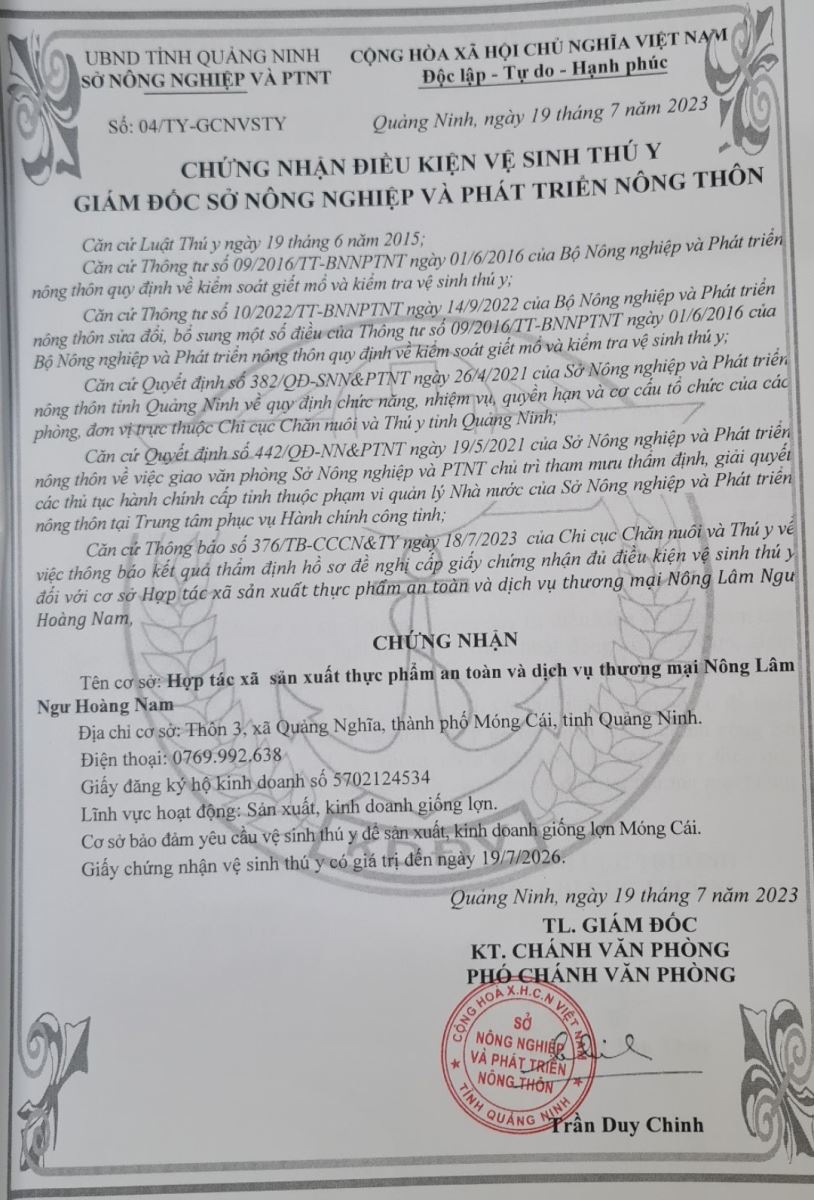 UBND TỈNH QUẢNG NINH
SỞ NÔNG NGHIỆP VÀ PTNT
CỘNG HÒA XÃ HỘI CHỦ NGHĨA VIỆT NAM
Độc lập - Tự do - Hạnh phúc
Số: 04/TY-GCNVSTY
Quảng Ninh, ngày 19 tháng 7 năm 2023
CHỨNG NHẬN ĐIỀU KIỆN VỆ SINH THÚ Y
GIÁM ĐỐC SỞ NÔNG NGHIỆP VÀ PHÁT TRIỂN NÔNG THÔN
Căn cứ Luật Thú y ngày 19 tháng 6 năm 2015;
Căn cứ Thông tư số 09/2016/TT-BNNPTNT ngày 01/6/2016 của Bộ Nông nghiệp và Phát triển
nông thôn quy định về kiểm soát giết mổ và kiểm tra vệ sinh thú y;
Căn cứ Thông tư số 10/2022/TT-BNNPTNT ngày 14/9/2022 của Bộ Nông nghiệp và Phát triển
nông thôn sửa đổi, bổ sung một số điều của Thông tư số 09/2016/TT-BNNPTNT ngày 01/6/2016 của
Bộ Nông nghiệp và Phát triển nông thôn quy định về kiểm soát giết mổ và kiểm tra vệ sinh thú y;
Căn cứ Quyết định số 382/QĐ-SNN&PTNT ngày 26/4/2021 của Sở Nông nghiệp và Phát triển
nông thôn tỉnh Quảng Ninh về quy định chức năng, nhiệm vụ, quyền hạn và cơ cấu tổ chức của các
phòng, đơn vị trực thuộc Chi cục Chăn nuôi và Thú y tỉnh Quảng Ninh;
Căn cứ Quyết định số 442/QĐ-NN&PTNT ngày 19/5/2021 của Sở Nông nghiệp và Phát triển
nông thôn về việc giao văn phòng Sở Nông nghiệp và PTNT chủ trì tham mưu thẩm định, giải quyết
các thủ tục hành chính cấp tỉnh thuộc phạm vi quản lý Nhà nước của Sở Nông nghiệp và Phát triển
nông thôn tại Trung tâm phục vụ Hành chính công tỉnh;
Căn cứ Thông báo số 376/TB-CCCN&TY ngày 18/7/2023 của Chi cục Chăn nuôi và Thú y về
việc thông báo kết quả thẩm định hồ sơ đề nghị cấp giấy chứng nhận đủ điều kiện vệ sinh thú y
đối với cơ sở Hợp tác xã sản xuất thực phẩm an toàn và dịch vụ thương mại Nông Lâm Ngư
Hoàng Nam,
CHỨNG NHẬN
Tên cơ sở: Hợp tác xã sản xuất thực phẩm an toàn và dịch vụ thương mại Nông Lâm
Ngư Hoàng Nam
Địa chỉ cơ sở: Thôn 3, xã Quảng Nghĩa, thành phố Móng Cái, tỉnh Quảng Ninh.
Điện thoại: 0769.992.638
Giấy đăng ký hộ kinh doanh số 5702124534
Lĩnh vực hoạt động: Sản xuất, kinh doanh giống lợn.
Cơ sở bảo đảm yêu cầu vệ sinh thú y để sản xuất, kinh doanh giống lợn Móng Cái.
Giấy chứng nhận vệ sinh thú y có giá trị đến ngày 19/7/2026.
KDĐV
Quảng Ninh, ngày 19 tháng 7 năm 2023
TL. GIÁM ĐỐC
KT. CHÁNH VĂN PHÒNG
PHÓ CHÁNH VĂN PHÒNG
CỘNG HOÀ X.H.C.N VIỆT NAM
SỞ
NÔNG NGHIỆP
VÀ PHÁT TRIỂN
NÔNG THÔN
TỈNH QUẢNG NINH
Trần Duy Chinh